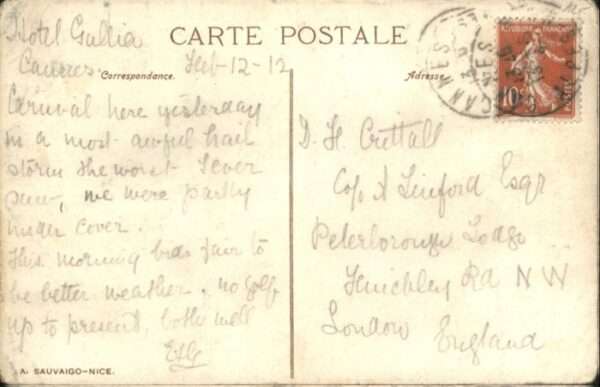 CARTE POSTALE
Correspondance.
Adresse
Hotel Gallia
Cannes Feb-12-12
Carnival here yesterday
in a most awful hail
storm the worst I ever
saw, we were partly
under cover.
This morning bids fair to
be better weather. no golf
up to present, both well
D. H. Crittall
C/o A Linford Esqr
Peterborough Lodge
Finchley Rd N W
London
England
RÉPUBLIQUE FRANÇAISE
10c
POSTES
CANNES
A. SAUVAIGO-NICE.